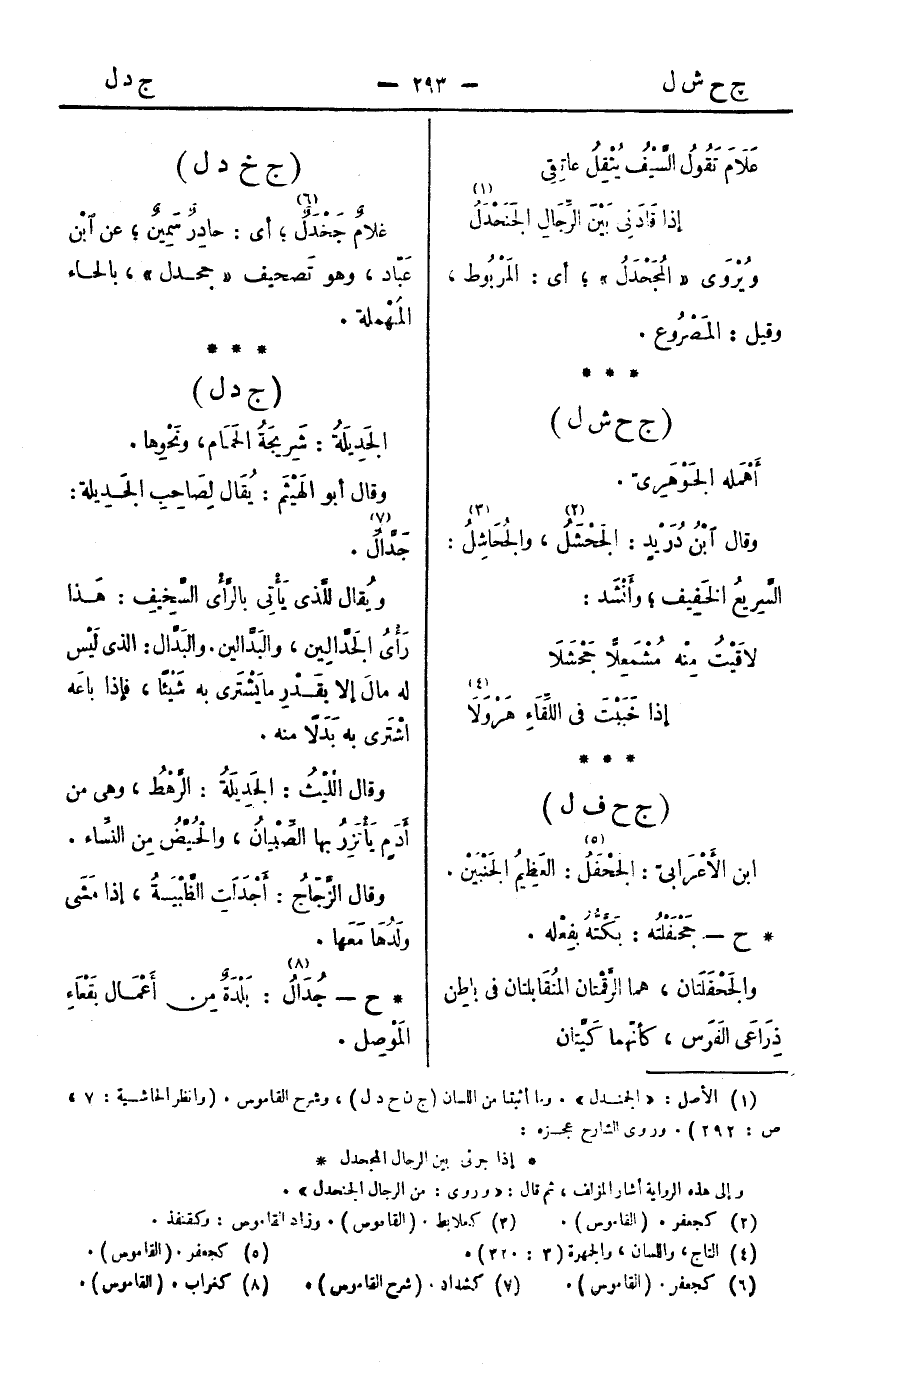 ج ح ش ل
— ٢٩٣ —
ج د ل
عَلَامَ تَقُولُ السَّيْفُ يُثْقِلُ عاتِقِي
إذا قَادَنِي بَيْنَ الرِّجَالِ الجَنَحْدَلُ (١)
ويُرْوَى « المُجَحْدَلُ » ؛ أى : المَرْبُوط ،
وقيل : المَصْرُوع .
* * *
(ج ح ش ل)
أَهْمَله الجَوْهَرِىّ .
وقال ٱبْنُ دُرَيْدٍ : الجَحْشَلُ (٢) ، والجُحَاشِلُ (٣) :
السَّرِيعُ الخَفِيف ؛ وأَنْشَد :
لاقَيْتُ مِنْه مُشْمَعِلًّا جَحْشَلَا
إذا خَبَبْتَ فى اللِّقَاءِ هَرْوَلَا (٤)
* * *
(ج ح ف ل)
ابن الأَعْرَابىّ : الجَحْفَلُ (٥) : العَظِيمُ الجَنْبَيْن .
* ح — جَحْفَلْتُه : بَكَّتُّه بِفِعْله .
والجَحْفَلَتَان ، هما الرَّقْمتَان المُتَقَابلتان فى باطِن
ذِرَاعَى الفَرَس ، كأنّهما كَيَّتان
(ج خ د ل)
غلامٌ جَخْدَلٌ (٦) ؛ أى : حادِرٌ سَمِينٌ ؛ عن ٱبْن
عَبّاد ، وهو تَصحيف « جحدل » ، بالحاء
المُهْملة .
* * *
(ج د ل)
الجَدِيلَةُ : شَرِيجَةُ الحَمَام، ونَحْوِها .
وقال أبو الهَيْثَم : يُقَال لِصَاحِبِ الجَـدِيلة :
جَدَّالٌ (٧) .
ويُقال للَّذى يَأْتِى بالرَّأْى السَّخِيفِ : هَـذا
رَأْىُ الجَدَّالِين ، والبَدَّالين . والبَدَّال : الذى لَيْس
له مالَ إلا بِقَـدْرِ مايَشْتَرى به شَيْئًا ، فإذا باعَه
اشْتَرى به بَدَلًا منه .
وقال اللَّيْثُ : الجَدِيلَةُ : الرَّهْطُ ، وهى من
أَدَمٍ يَأْتَزِرُ بها الصِّبْيانُ ، والحُيَّضُ مِن النِّساء .
وقال الزَّجّاجُ : أَجْدَلَتِ الظَّبْيَـةُ ، إذا مَشَى
ولَدُهَا مَعَها .
* ح — جُدَالُ (٨) : بَلْدَةٌ مِن أَعْمَـال بَقْعَاءِ
المَوْصِل .
(١) الأصل : « الجمندل » . وما أثبتنا من اللسان (ج ن ح د ل) ، وشرح القاموس . (وانظر الحاشية : ٧ ،
ص : ٢٩٢) . وروى الشارح عجـزه :
* إذا جرنى بين الرجال المجحدل *
وإلى هذه الرواية أشار المؤلف ، ثم قال : « وروى : من الرجال الجنحدل » .
(٢) كجعفر . (القاموس) . (٣) كعلابط . (القاموس) . وزاد القاموس : وكقنفذ .
(٤) التاج ، واللسان ، والجمهرة (٣ : ٣٢٠) . (٥) كجعفر . (القاموس) .
(٦) كجعفر . (القاموس) . (٧) كشداد . (شرح القاموس) . (٨) كغراب . (القاموس) .